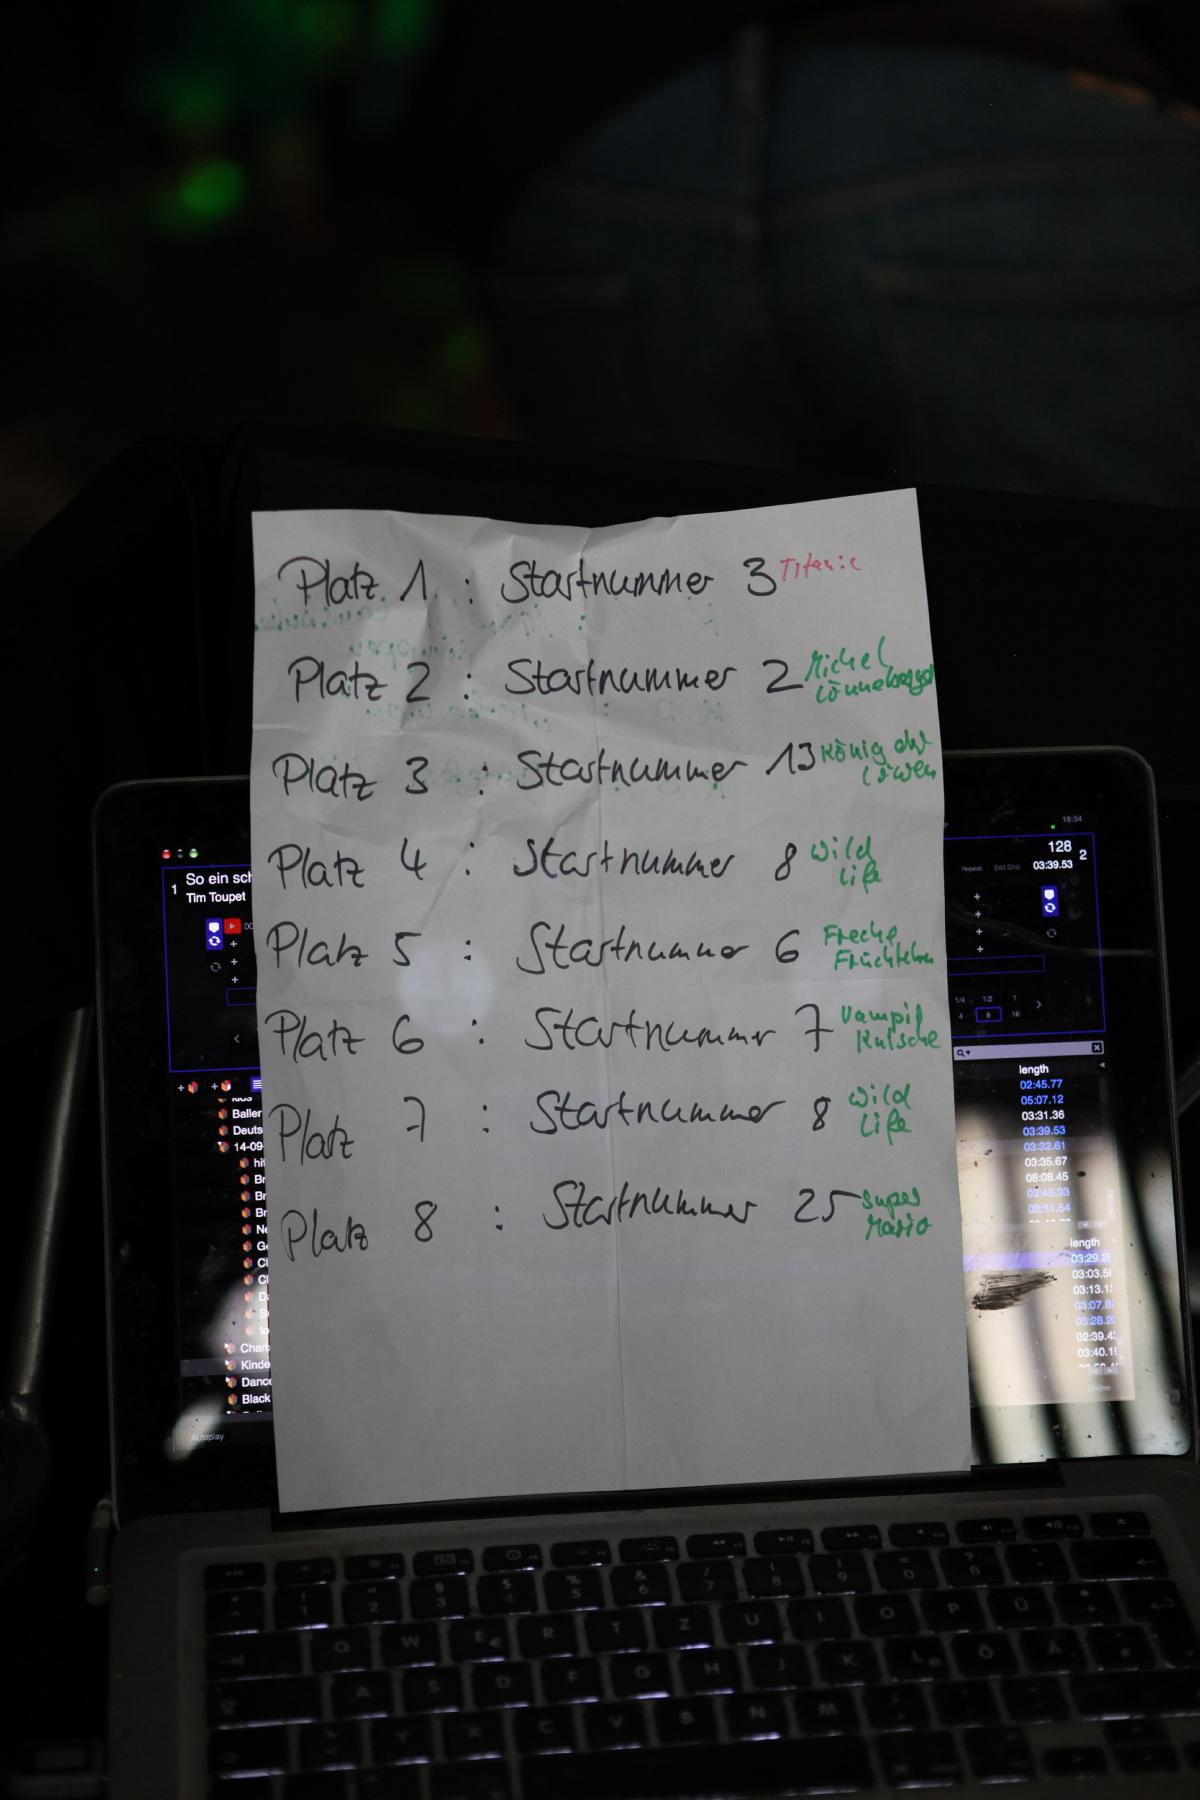 Platz 1 : Startnummer 3 Titanic
Platz 2 : Startnummer 2 Michel
Lönneberga
Platz 3 : Startnummer 13 König der
Löwen
Platz 4 : Startnummer 8 Wild
Life
Platz 5 : Startnummer 6 Freche
Früchtchen
Platz 6 : Startnummer 7 Vampir
Kutsche
Platz 7 : Startnummer 8 Wild
Life
Platz 8 : Startnummer 25 Super
Mario
1 So ein sch
Tim Toupet
18:34
128
03:39.53 2
Repeat Edit Grid
1/4 1/2 1
4 8 16
Kids
Baller
Deuts
14-09
hi
Br
Br
Br
Ne
G
Cl
Cl
D
S
to
Char
Kinde
Dance
Black
Autoplay
length
02:45.77
05:07.12
03:31.36
03:39.53
03:32.61
03:35.67
08:08.45
02:45.33
02:31.54
length
03:29.2
03:03.5
03:13.1
03:07.8
03:28.2
02:39.4
03:40.1
esc
1 2 3 4 5 6 7 8 9 0 ß
Q W E R T Z U I O P Ü
A S D F G H J K L Ö Ä
Y X C V B N M